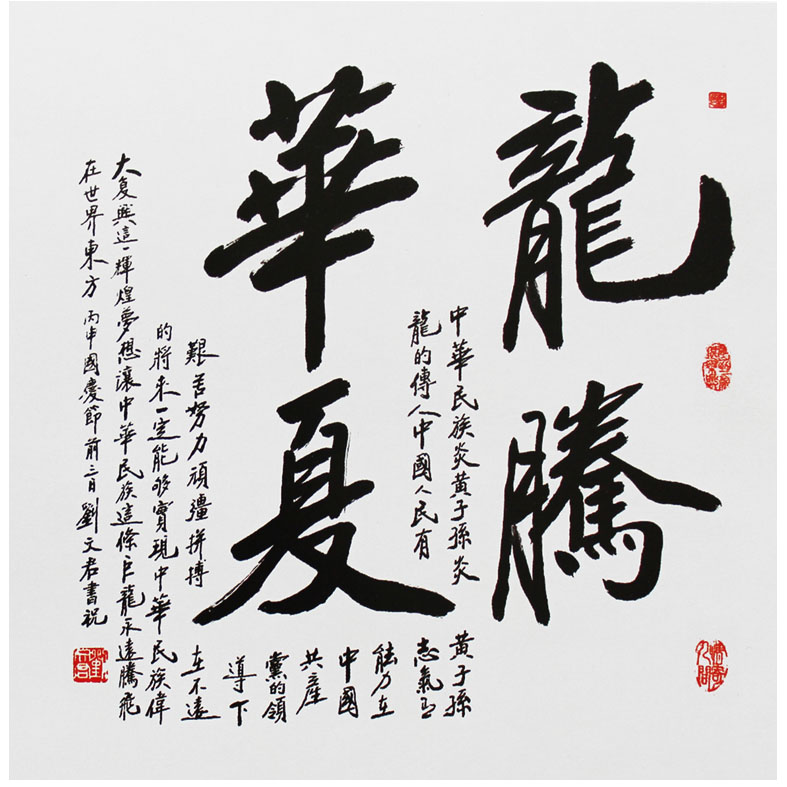 龍騰
華夏
中華民族炎黃子孫炎黃子孫
龍的傳人中國人民有志氣有
能力在
中國
共產
黨的領
導下
艱苦努力頑彊拼搏在不遠
的將来一定能够實現中華民族偉
大复興這一輝煌夢想讓中華民族這條巨龍永遠騰飛
在世界東方 丙申國慶節前三日劉文君書祝